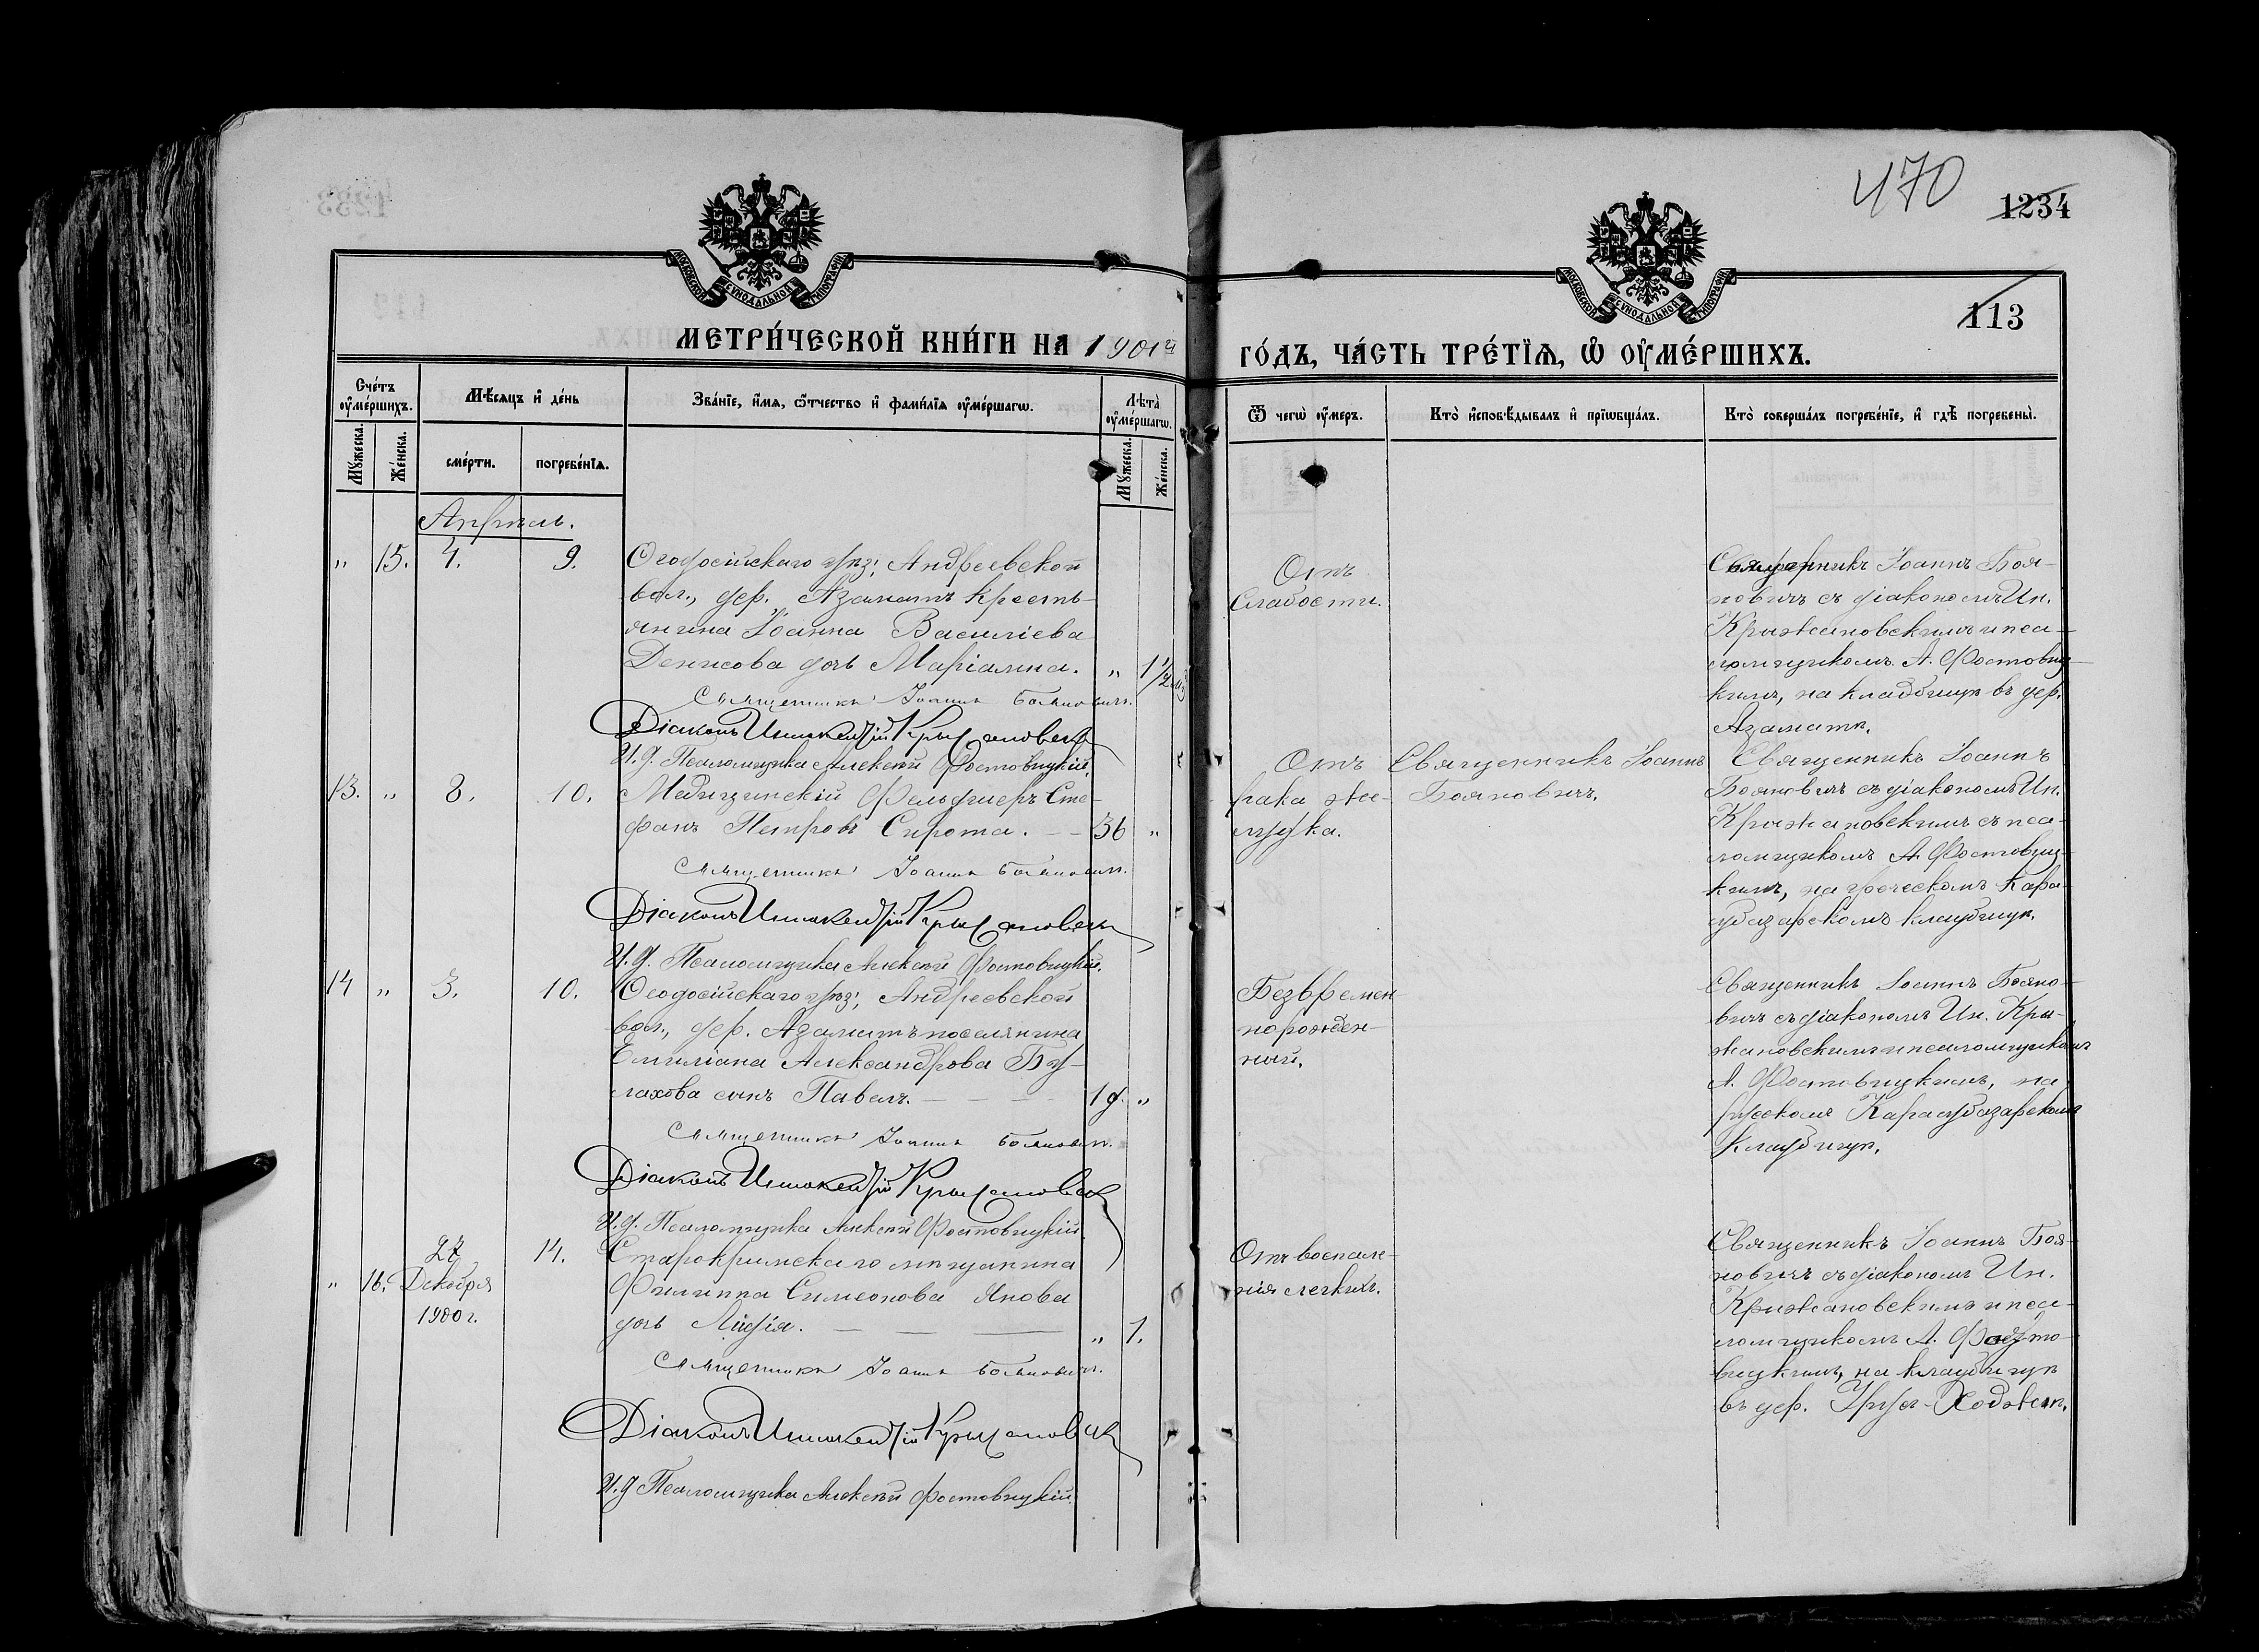 470
1234
113
МОСКОВСКОЙ СѴНОДАЛЬНОЙ ТИПОГРАФІИ
МОСКОВСКОЙ СѴНОДАЛЬНОЙ ТИПОГРАФІИ
МЕТРИ́ЧЕСКОЙ КНИ́ГИ НА 1901й
ГО́ДЪ, ЧА́СТЬ ТРЕ́ТЇѦ, Ѽ ОУ҆МЕ́РШИХЪ.
Сче́тъ оу҆ме́ршихъ.
Мꙋ́жеска.
Же́нска.
Мѣ́сѧцъ и҆ де́нь
сме́рти.
погребе́нїѧ.
Зва́нїе, и҆́мѧ, ѻ҆́тчество и҆ фами́лїѧ оу҆ме́ршагѡ.
Лѣ́та оу҆ме́ршагѡ.
Мꙋ́жеска.
Же́нска.
Ѿ чегѡ̀ оу҆́меръ.
Кто̀ и҆сповѣ́дывалъ и҆ прїѡбща́лъ.
Кто̀ соверша́лъ погребе́нїе, и҆ гдѣ̀ погребены̀.
Апрѣль.
" 15. 4. 9.
Ѳеодосійскаго уѣз; Андреевской
вол., дер. Азаматъ кресть-
янина Іоанна Василіева
Денисова дочь Маріамна. " 1½
Священникъ Іоаннъ Бояновичъ.
Діаконъ Иннокентій Крыжановскій
И.д. Псаломщика Алексѣй Фостовицкій.
Отъ
слабости.
Священникъ Іоаннъ Боя-
новичъ съ діакономъ Ин.
Крыжановскимъ и пса-
ломщикомъ А. Фостовиц-
кимъ, на кладбищѣ въ дер.
Азаматѣ.
13. " 8. 10.
Медицинскій Фельдшеръ Сте-
фанъ Петровъ Сирота. — — 36 "
Священникъ Іоаннъ Бояновичъ.
Діаконъ Иннокентій Крыжановскій
И.д. Псаломщика Алексѣй Фостовицкій.
Отъ
рака же-
лудка.
Священникъ Іоаннъ
Бояновичъ.
Священникъ Іоаннъ
Бояновичъ съ діакономъ Ин.
Крыжановскимъ съ пса-
ломщикомъ А. Фостовиц-
кимъ, на греческомъ Кара-
субазарскомъ кладбищѣ.
14 " 3. 10.
Ѳеодосійскаго уѣз; Андреевской
вол., дер. Азаматъ поселянина
Емиліана Александрова Бу-
лахова сынъ Павелъ. — — — 1 д. "
Священникъ Іоаннъ Бояновичъ.
Діаконъ Иннокентій Крыжановскій
И.д. Псаломщика Алексѣй Фостовицкій.
Безвремен-
норожден-
ный.
Священникъ Іоаннъ Бояно-
вичъ съ діакономъ Ин. Кры-
жановскимъ и псаломщикомъ
А. Фостовицкимъ, на
русскомъ Карасубазарскомъ
кладбищѣ.
" 16. 27 Декабря 1900 г. 14.
Старокрымскаго мѣщанина
Филиппа Симеонова Янова
дочь Лидія. — — — " 1.
Священникъ Іоаннъ Бояновичъ.
Діаконъ Иннокентій Крыжановскій
И.д. Псаломщика Алексѣй Фостовицкій.
Отъ воспале-
нія легкихъ.
Священникъ Іоаннъ Боя-
новичъ съ діакономъ Ин.
Крыжановскимъ и пса-
ломщикомъ А. Фосто-
вицкимъ, на кладбищѣ
въ дер.